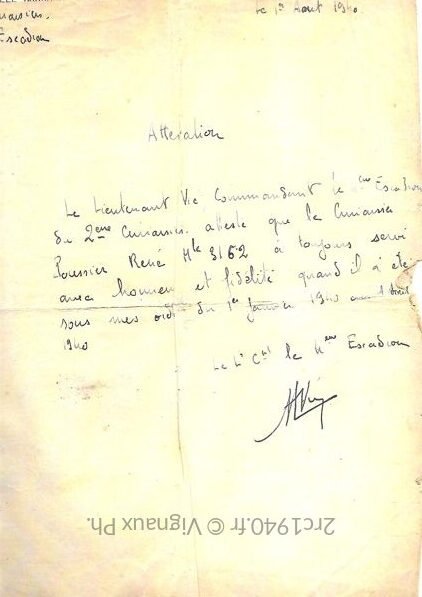 Escadron
Le 1er Août 1940.
Attestation
Le Lieutenant Vié, Commandant le 4eme Escadron
du 2eme Cuirassiers. atteste que le Cuirassier
Poussier René Mle 3162 à toujours servi
avec honneur et fidélité quand il à été
sous mes ordres du 1er Janvier 1940 au Avril
1940
Le Lt Cdt le 4eme Escadron
2rc1940.fr © Vignaux Ph.